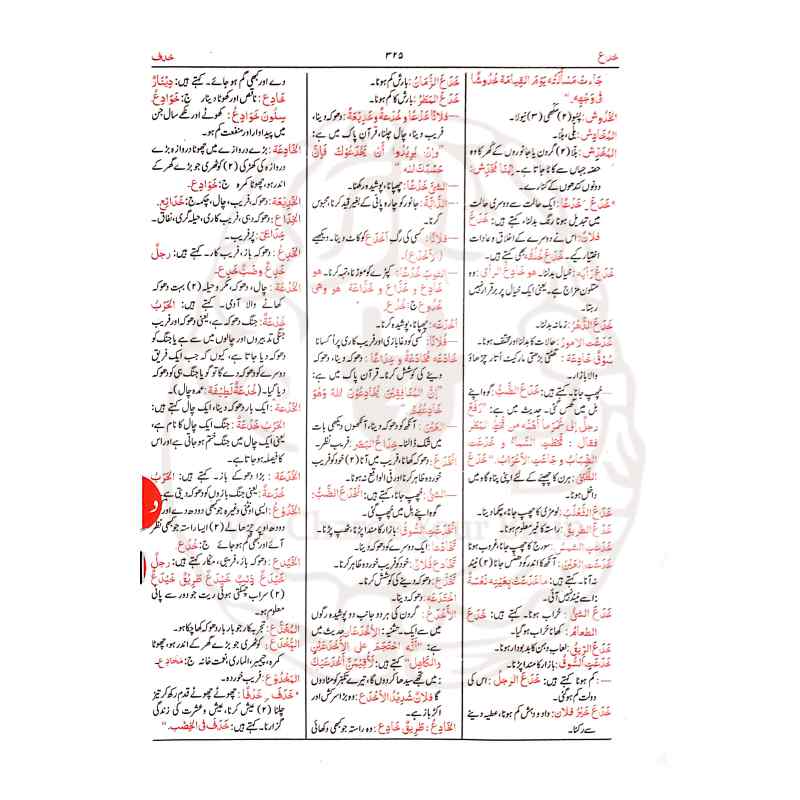 خدع ۳۲۵ خدف
جَاءَتْ مَسْأَلَتُه يَوْمَ القِيَامَةِ خُدُوشًا
فِي وَجْهِهِ."
الخَدُوش: پسّو (۲) مکھی (۳) نیولا۔
المُخَادِش: بلّی، بلّا۔
المُخَدِّش: بلّا (۲) گردن یا جانوروں کے گھر کا وہ
حصہ جہاں سے کاٹا جاتا ہے۔
دونوں کندھوں کے کنارے۔
* خَدَعَ ـَ خَدْعًا: ایک حالت سے دوسری حالت
میں تبدیل ہونا، رنگ بدلنا، کہتے ہیں: خَدَعَ
فلانٌ: اس نے دوسرے کے اخلاق و عادات
اختیار کیے۔ بھی کہتے ہیں۔
خیال بدلنا۔ هو خادِعُ الرأى: وہ
متلون مزاج ہے۔ یعنی ایک خیال پر برقرار نہیں
رہتا۔
خَدَعَ الدَّهْرُ: زمانہ بدلنا۔
خَدَعَتِ الأمورُ: حالات کا بدلنا اور مختلف ہونا۔
سُوقٌ خَادِعَةٌ: گھٹتی بڑھتی مارکیٹ، اُتار چڑھاؤ
والا بازار۔
— چھپ جانا۔ کہتے ہیں: خَدَعَ الضَّبُّ: گوہ اپنے
بل میں گھس گئی۔ حدیث میں ہے: "رَفَعَ
رجلٌ إلى عُمَرَ
فقال: قَحَطَ السَّمَاءُ و خَدَعَتِ
الضِّبَابُ و جَاعَتِ الأَعْرَابُ."
ہرن کا چھپنے کے لیے اپنی پناہ گاہ میں
داخل ہونا۔
خَدَعَ الثَّعْلَبُ: لومڑی کا چھپ جانا، چکما دینا۔
خَدَعَ الطريقُ: راستہ کا غیر معلوم ہونا۔
خَدَعَتِ الشمسُ: سورج کا چھپ جانا، غروب ہونا
خَدَعَتِ العَيْنُ: آنکھ کا اندر کو دھنس جانا (۲) نیند
نہ آنا۔ کہتے ہیں: ما خَدَعَتْ بِعَيْنِه نَعْسَةٌ
: اسے نیند نہیں آئی۔
خَدَعَ الشئُ: خراب ہونا۔ کہتے ہیں: خَدَعَ
الطعامُ: کھانا خراب ہو گیا۔
خَدَعَ الرِّيقُ: لعاب دہن کا بدبودار ہونا۔
خَدَعَتِ السُّوقُ: بازار کا مندا پڑنا۔
— : کم ہونا۔ کہتے ہیں: خَدَعَ الرجلُ: اس کی
دولت کم ہو گئی۔
خَدَعَ خَيْرُ فلان: داد و دہش کم ہونا، عطیہ دینے
سے رکنا۔
خَدَعَ الزَّمَانُ: بارش کم ہونا۔
خَدَعَ المَطَرُ: بارش کا کم ہونا۔
— فلانًا خَدْعًا و خُدْعَةً و خَدِيعَةً: دھوکہ دینا،
فریب دینا، چال چلنا، قرآن پاک میں ہے:
"وإِنْ يُرِيدُوا أَنْ يَخْدَعُوكَ فَإِنَّ
حَسْبَكَ اللهُ"
— الشئَ خَدْعًا: چھپانا، پوشیدہ رکھنا۔
— الدَّابَّةَ: جانور کو چارہ پانی کے بغیر قید کرنا، محبوس
کرنا۔
— فلانًا: کسی کی رگ أخدع کو کاٹ دینا۔ دیکھیے
(الأخدع)۔
— الثوبَ خَدْعًا: کپڑے کو موڑنا، تہہ کرنا۔ هو
خَادِعٌ و خَدَّاعٌ و خَدَّاعَة هو وهى
خَدُوعٌ ج: خُدُعٌ.
أخدَعَه: چھپانا، پوشیدہ کرنا۔
— فلانًا: کسی کو دغا بازی اور فریب کاری پر اُکسانا
خَادَعَه مُخَادَعَةً و خِدَاعًا: دھوکہ دینا، دھوکہ
دینے کی کوشش کرنا۔ قرآن پاک میں ہے:
"إِنَّ المُنَافِقِينَ يُخَادِعُونَ اللهَ وَهُوَ
خَادِعُهُمْ"
— العَيْنَ: آنکھ کو دھوکہ دینا، آنکھوں دیکھی بات
میں شک ڈالنا۔ خِدَاعُ البَصَر: فریب نظر۔
انْخَدَعَ: دھوکہ کھانا، فریب میں آنا (۲) خود کو فریب
خوردہ ظاہر کرنا اور فی الواقع نہ ہونا۔
— الشئُ: چھپ جانا، کہتے ہیں: انْخَدَعَ الضَّبُّ:
گوہ اپنے بل میں چھپ گئی۔
انْخَدَعَتِ السُّوقُ: بازار کا مندا پڑنا، ٹھپ پڑنا۔
تَخَادَعَا: ایک دوسرے کو دھوکہ دینا۔
تَخَادَعَ فلانٌ: خود کو فریب خوردہ ظاہر کرنا۔
تَخَدَّعَ: دھوکہ دینے کی کوشش کرنا۔
اخْتَدَعَه: دھوکہ دینا۔
الأَخْدَعُ: گردن کی ہر دو جانب دو پوشیدہ رگوں
میں سے ایک۔ تثنیہ: الأخْدَعَان، حدیث میں
ہے: "أنَّه احْتَجَمَ على الأَخْدَعَيْنِ
والكَاهِلِ" کہتے ہیں: لأُقِيمَنَّ أَخْدَعَيْكَ
: میں تجھے سیدھا کر دوں گا، تیرے تکبر کو مٹا دوں
گا فلانٌ شَدِيدُ الأَخْدَع: وہ بڑا سرکش اور
اکڑ باز ہے۔
الخَادِعُ: طَرِيقٌ خَادِعٌ: وہ راستہ جو کبھی دکھائی
دے اور کبھی گم ہو جائے۔ کہتے ہیں: دِينَارٌ
خَادِعٌ: ناقص اور کھوٹا دینار ج: خَوَادِعُ
سِنُونَ خَوَادِعُ: کھوٹے اور نکمے سال جن
میں پیداوار اور منفعت کم ہو۔
الخَادِعَةُ: بڑے دروازے میں چھوٹا دروازہ، بڑے
دروازہ کی کھڑکی (۲) کوٹھری جو بڑے گھر کے
اندر ہو، چھوٹا کمرہ ج: خَوَادِعُ۔
الخَدِيعَة: دھوکہ، فریب، چال، چکمہ ج: خَدَائِعُ۔
الخِدَاع: دھوکہ دہی، فریب کاری، حیلہ گری، نفاق۔
خِدَاعِيٌّ: پر فریب۔
الخَدِعُ: دھوکہ باز، فریب کار۔ کہتے ہیں: رجلٌ
خَدِعٌ و ضَبٌّ خَدِعٌ.
الخُدْعَة: چال، دھوکہ، مکر و حیلہ (۲) بہت دھوکہ
کھانے والا آدمی۔ کہتے ہیں: الحَرْبُ
خُدْعَةٌ: جنگ دھوکہ ہے، یعنی دھوکہ اور فریب
جنگی تدبیروں اور چالوں میں سے ہے یا جنگ کو
دھوکہ دیا جاتا ہے، کیوں کہ جب ایک فریق
دوسرے کو دھوکہ دے گا تو گویا جنگ ہی کو دھوکہ
دیا گیا۔ (خُدْعَةٌ لَطِيفَةٌ: عمدہ چال)۔
الخَدْعَة: ایک بار دھوکہ دینا، ایک چال کہتے ہیں:
الحَرْبُ خَدْعَةٌ: جنگ ایک چال کا نام ہے،
یعنی ایک چال میں جنگ ختم ہو جاتی ہے اور اس
کا فیصلہ ہو جاتا ہے۔
الخُدَعَة: بڑا دھوکے باز۔ کہتے ہیں: الحَرْبُ
خُدَعَةٌ: یعنی جنگ بازوں کو دھوکہ دیتی ہے۔
الخَدُوعُ: ایسی اونٹنی وغیرہ جو کبھی دودھ دے اور
دودھ اوپر چڑھا لے (۲) ایسا راستہ جو کبھی نظر
آئے اور کبھی گم ہو جائے ج: خُدُعٌ
الخَيْدَع: دھوکہ باز، فریبی، مکّار کہتے ہیں: رجلٌ
خَيْدَعٌ و ذِئْبٌ خَيْدَعٌ طَرِيقٌ خَيْدَعٌ
(۲) سراب، چمکتی ہوئی ریت جو دور سے پانی
معلوم ہو۔
المُخَدَّع: تجربہ کار جو بار بار دھوکہ کھا چکا ہو۔
المُخْدَع: کوٹھری جو بڑے گھر کے اندر ہو، چھوٹا
کمرہ، چیمبر، الماری، نعمت خانہ ج: مَخَادِع۔
المَخْدُوع: فریب خوردہ۔
* خَدَفَ ـِ خَدْفًا: چھوٹے چھوٹے قدم رکھ کر تیز
چلنا (۲) عیش کرنا، عیش و عشرت کی زندگی
گزارنا۔ کہتے ہیں: خَدَفَ فى الخِصْب."